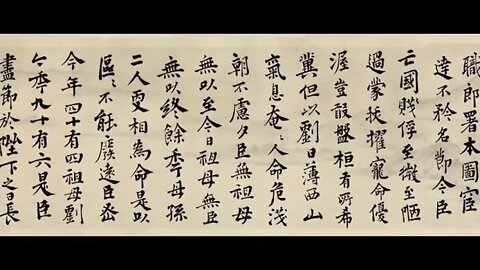 職郎署本圖宦
達不矜名節今臣
亡國賤俘至微至陋
過蒙拔擢寵命優
渥豈敢盤桓有所希
冀但以劉日薄西山
氣息奄々人命危淺
朝不慮夕臣無祖母
無以至今日祖母無臣
無以終餘秊母孫
二人更相為命是以
區々不能廢遠臣密
今年四十有四祖母劉
今秊九十有六是臣
盡節於陛下之日長